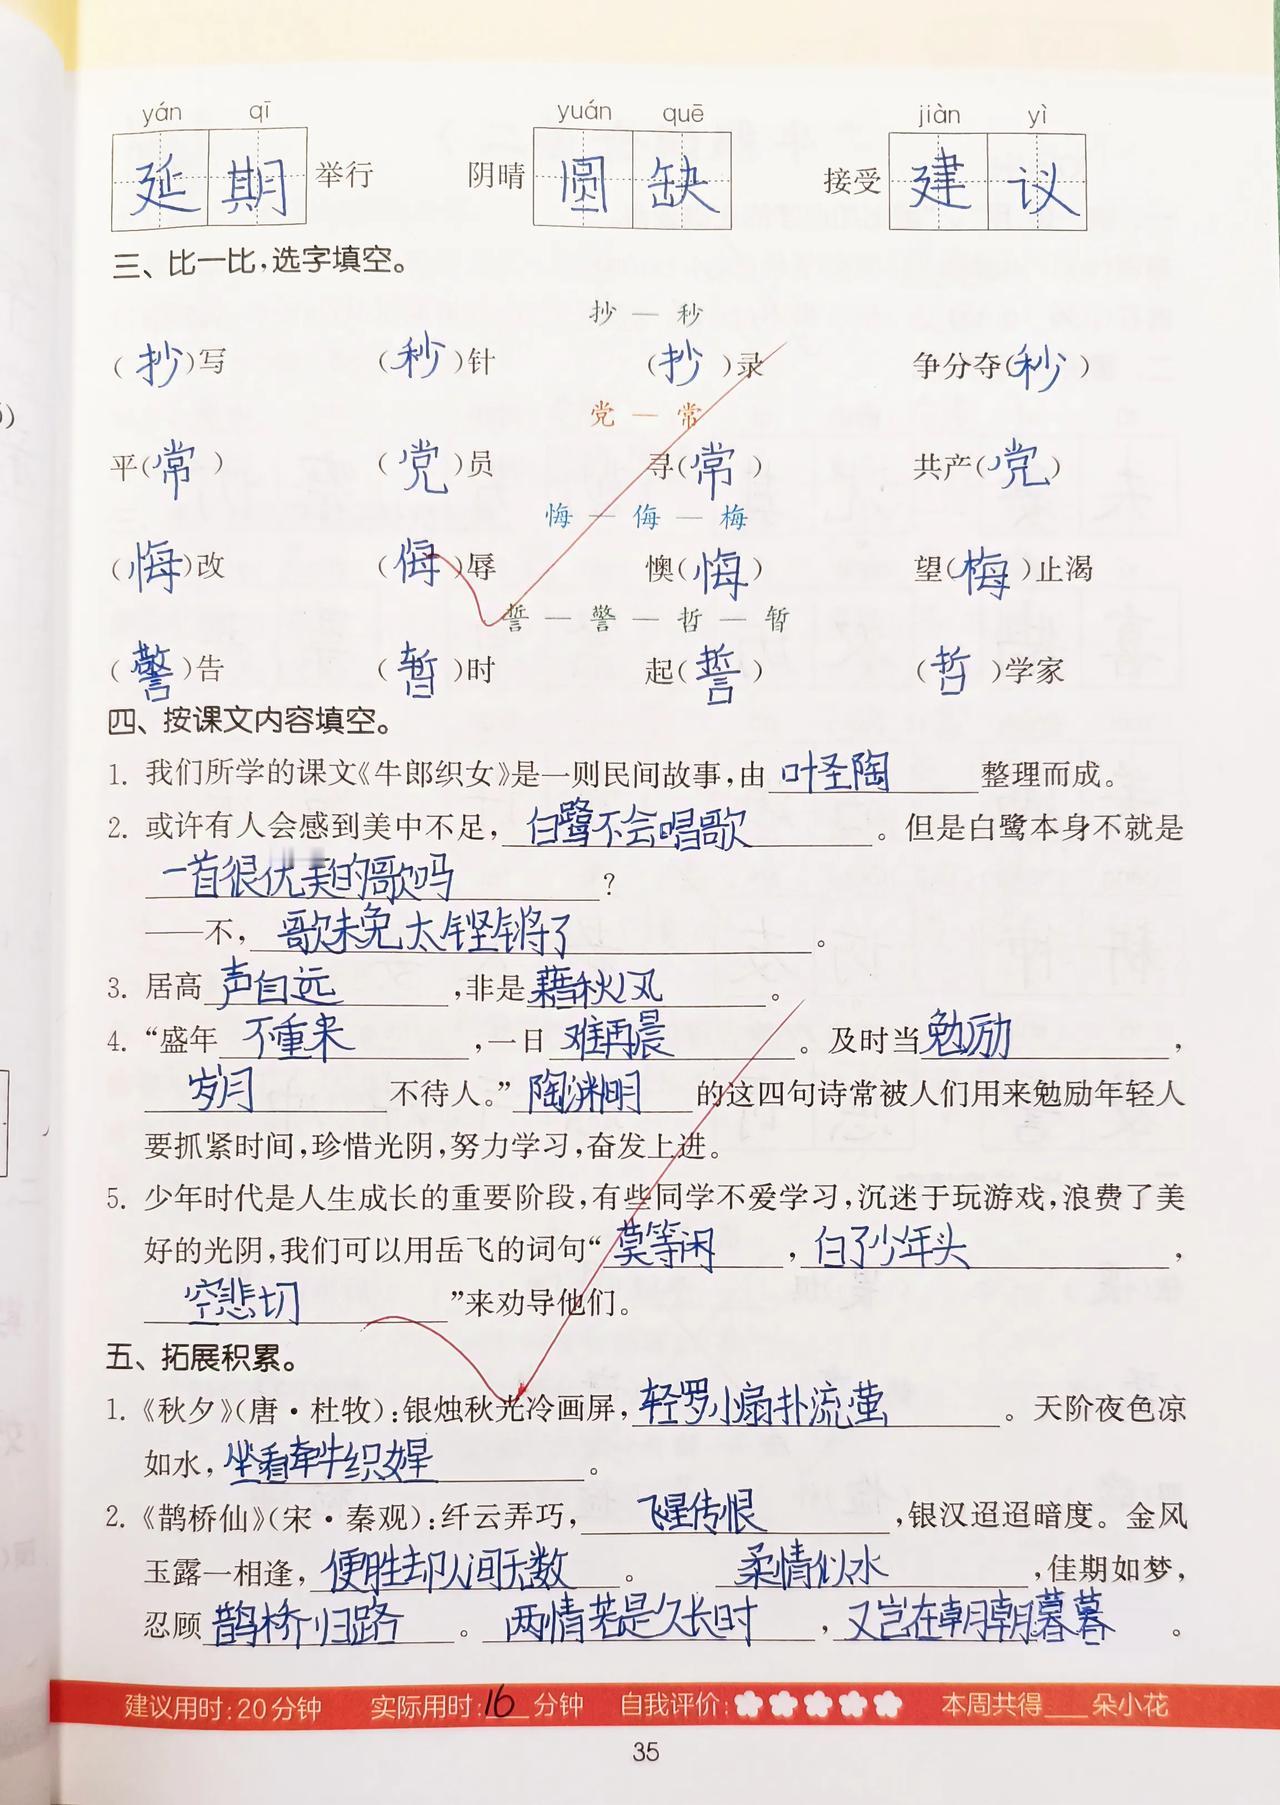 yán qī yuán quē jiàn yì
延期举行 阴晴圆缺 接受建议
三、比一比,选字填空。
抄 — 秒
(抄)写 (秒)针 (抄)录 争分夺(秒)
党 — 常
平(常) (党)员 寻(常) 共产(党)
悔 — 侮 — 梅
(悔)改 (侮)辱 懊(悔) 望(梅)止渴
誓 — 警 — 哲 — 暂
(警)告 (暂)时 起(誓) (哲)学家
四、按课文内容填空。
1. 我们所学的课文《牛郎织女》是一则民间故事,由叶圣陶整理而成。
2. 或许有人会感到美中不足,白鹭不会唱歌。但是白鹭本身不就是
一首很优美的歌吗?
——不,歌未免太铿锵了。
3. 居高声自远,非是藉秋风。
4. “盛年不重来,一日难再晨。及时当勉励,
岁月不待人。”陶渊明的这四句诗常被人们用来勉励年轻人
要抓紧时间,珍惜光阴,努力学习,奋发上进。
5. 少年时代是人生成长的重要阶段,有些同学不爱学习,沉迷于玩游戏,浪费了美
好的光阴,我们可以用岳飞的词句“莫等闲,白了少年头,
空悲切”来劝导他们。
五、拓展积累。
1.《秋夕》(唐·杜牧):银烛秋光冷画屏,轻罗小扇扑流萤。天阶夜色凉
如水,坐看牵牛织女星。
2.《鹊桥仙》(宋·秦观):纤云弄巧,飞星传恨,银汉迢迢暗度。金风
玉露一相逢,便胜却人间无数。柔情似水,佳期如梦,
忍顾鹊桥归路。两情若是久长时,又岂在朝朝暮暮。
建议用时:20分钟 实际用时:16分钟 自我评价: 本周共得___朵小花
35